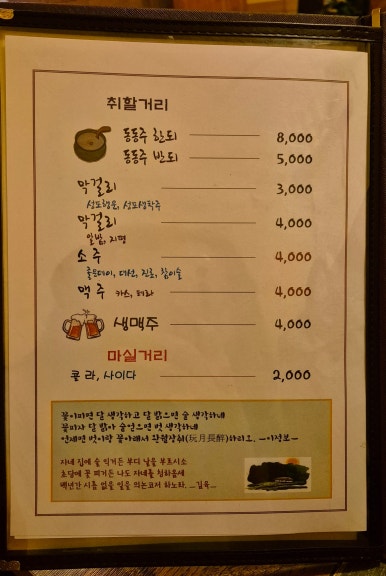 취할거리
동동주 한되 8,000
동동주 반되 5,000
막걸리 3,000
막걸리 4,000
알밤, 지평
소주 4,000
골드데이, 대선, 진로, 참이슬
맥주 카스, 테라 4,000
생맥주 4,000
마실거리
콜라, 사이다 2,000
꽃이피면 달 생각하고 달 밝으면 술 생각하네
꽃피자 달 밝아 술얻으면 벗 생각하네
언제면 벗이랑 꽃아래서 완월장취(玩月長醉)하리오. -이정보-
자네 집에 술 익거든 부디 날을 부르시소
초당에 꽃 피거든 나도 자네를 청하옵세
백년간 시름 없을 일을 의논코저 하노라. -김육-